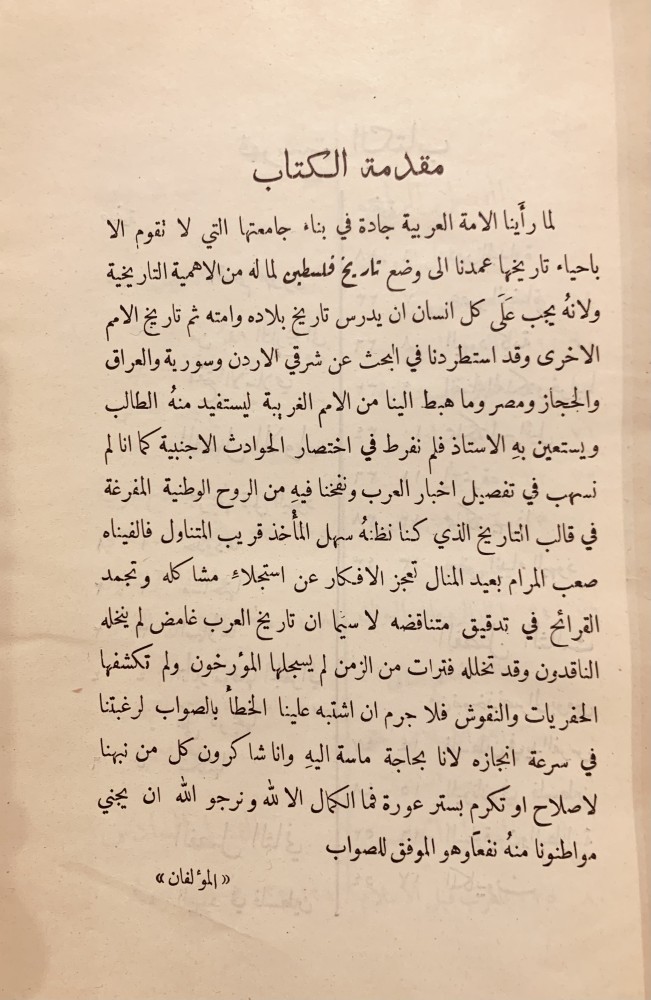 مقدمة الكتاب
لما رأَينا الامة العربية جادة في بناء جامعتها التي لا تقوم الا
باحياء تاريخها عمدنا الى وضع تاريخ فلسطين لما له من الاهمية التاريخية
ولانهُ يجب عَلَى كل انسان ان يدرس تاريخ بلاده وامته ثم تاريخ الامم
الاخرى وقد استطردنا في البحث عن شرقي الاردن وسورية والعراق
والحجاز ومصر وما هبط الينا من الامم الغريبة ليستفيد منهُ الطالب
ويستعين بهِ الاستاذ فلم نفرط في اختصار الحوادث الاجنبية كما انا لم
نسهب في تفصيل اخبار العرب ونفخنا فيهِ من الروح الوطنية المفرغة
في قالب التاريخ الذي كنا نظنهُ سهل المأْخذ قريب المتناول فالفيناه
صعب المرام بعيد المنال تعجز الافكار عن استجلاءِ مشاكله وتجمد
القرائح في تدقيق متناقضه لا سيَّما ان تاريخ العرب غامض لم ينخله
الناقدون وقد تخلله فترات من الزمن لم يسجلها المؤرخون ولم تكشفها
الحفريات والنقوش فلا جرم ان اشتبه علينا الخطأُ بالصواب لرغبتنا
في سرعة انجازه لانا بحاجة ماسة اليهِ وانا شاكرون كل من نبهنا
لاصلاح او تكرم بستر عورة فما الكمال الا لله ونرجو الله ان يجني
مواطنونا منهُ نفعاً وهو الموفق للصواب
«المؤلفان»